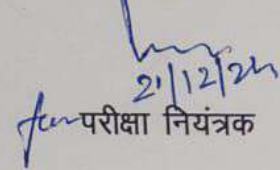 21/12/24
for परीक्षा नियंत्रक